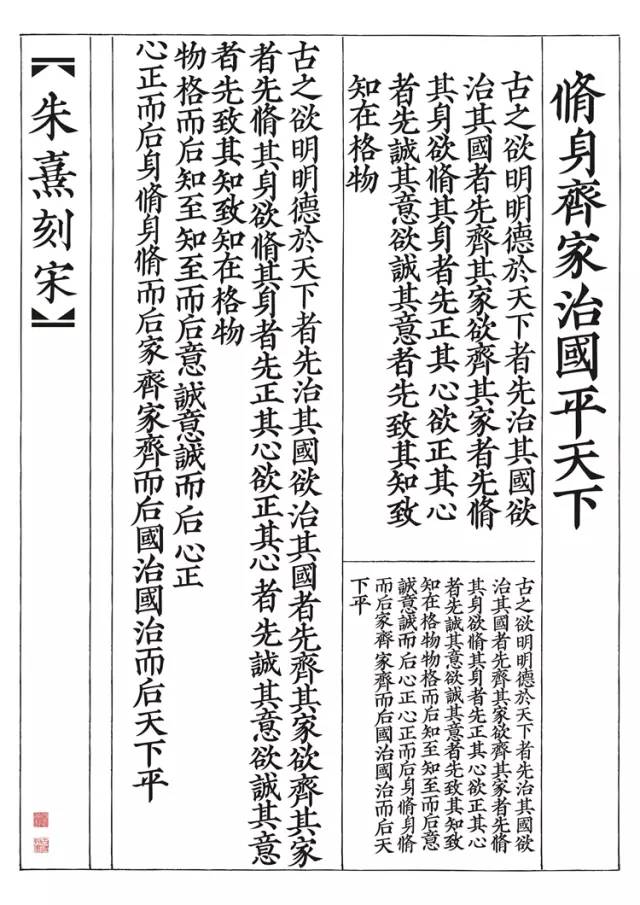 脩身齊家治國平天下
古之欲明明德於天下者先治其國欲
治其國者先齊其家欲齊其家者先脩
其身欲脩其身者先正其心欲正其心
者先誠其意欲誠其意者先致其知致
知在格物
古之欲明明德於天下者先治其國欲
治其國者先齊其家欲齊其家者先脩
其身欲脩其身者先正其心欲正其心
者先誠其意欲誠其意者先致其知致
知在格物物格而后知至知至而后意
誠意誠而后心正心正而后身脩身脩
而后家齊家齊而后國治國治而后天
下平
古之欲明明德於天下者先治其國欲治其國者先齊其家欲齊其家
者先脩其身欲脩其身者先正其心欲正其心者先誠其意欲誠其意
者先致其知致知在格物
物格而后知至知至而后意誠意誠而后心正
心正而后身脩身脩而后家齊家齊而后國治國治而后天下平
【朱熹刻宋】